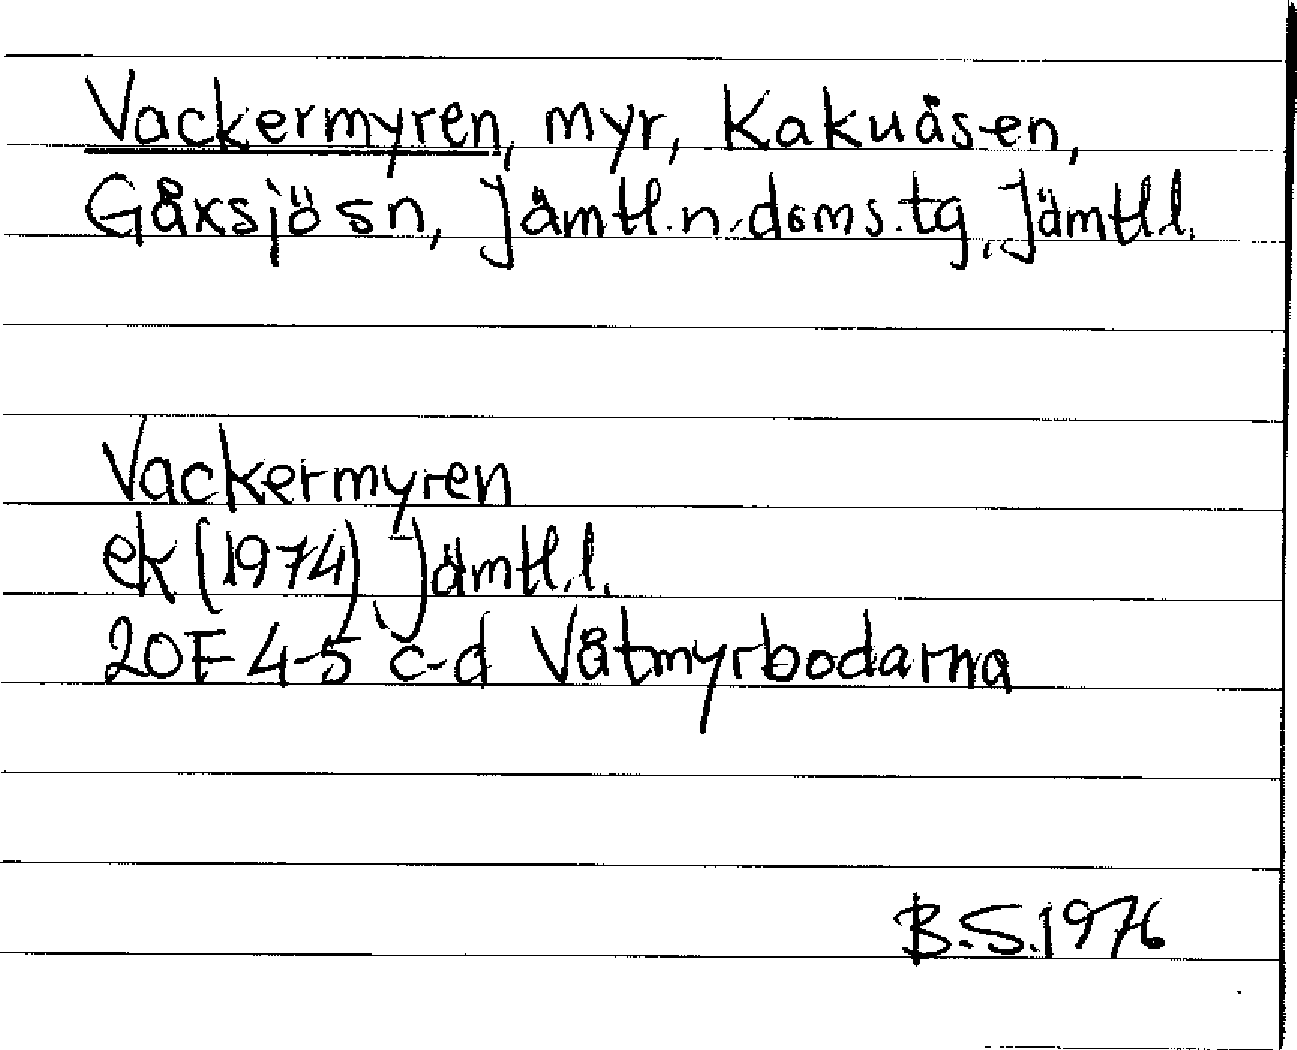 Vackermyren, myr, Kakuåsen,
Gåxsjö sn, Jämtl.n.doms.tg, Jämtl.l.
Vackermyren
ek (1974), Jämtl.l.
20F 4-5 c-d Våtmyrbodarna
B.S.1976